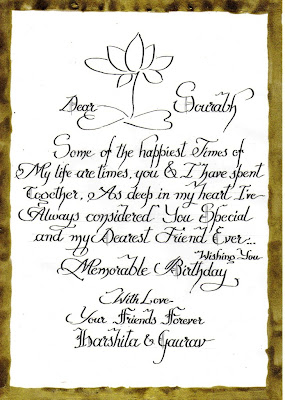 Dear Sourabh
Some of the happiest Times of
My life are times, you & I have spent
Together, As deep in my heart I've
Always considered You Special
and my Dearest Friend Ever...
Wishing You
Memorable Birthday
With Love-
Your Friends Forever
Harshita & Gaurav